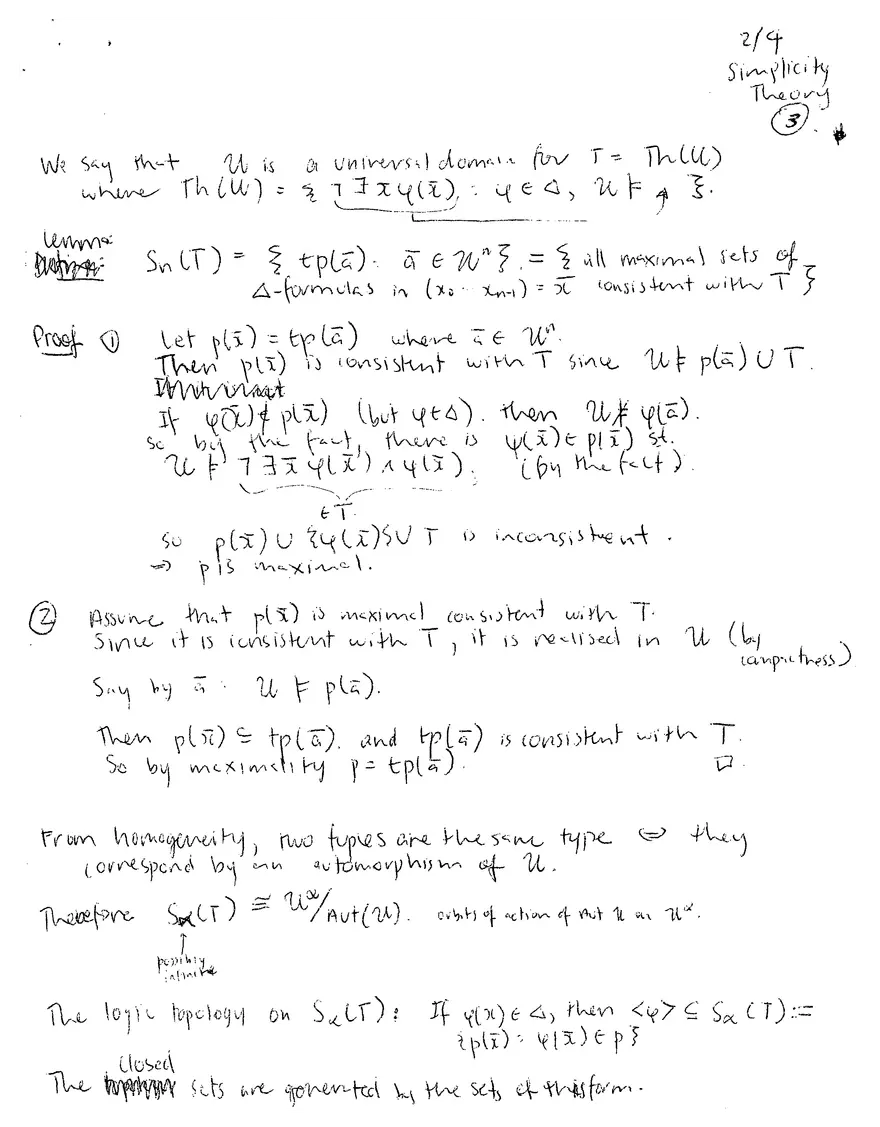 2/4
Simplicity
Theory
③
We say that 𝒰 is a universal domain for T = Th(𝒰)
where Th(𝒰) = { ¬∃x̄ φ(x̄) : φ ∈ Δ, 𝒰 ⊨ ↑ }.
Lemma:
Sₙ(T) = { tp(ā) : ā ∈ 𝒰ⁿ }. = { all maximal sets of
Δ-formulas in (x₀ ... xₙ₋₁) = x̄ consistent with T }
Proof ① Let p(x̄) = tp(ā) where ā ∈ 𝒰ⁿ.
Then p(x̄) is consistent with T since 𝒰 ⊨ p(ā) ∪ T.
If φ(x̄) ∉ p(x̄) (but φ ∈ Δ). then 𝒰 ⊭ φ(ā).
So by the fact, there is ψ(x̄) ∈ p(x̄) st.
𝒰 ⊨ ¬∃x̄ φ(x̄) ∧ ψ(x̄). (by the fact).
∈ T.
So p(x̄) ∪ {φ(x̄)} ∪ T is inconsistent.
⇒ p is maximal.
② Assume that p(x̄) is maximal consistent with T.
Since it is consistent with T, it is realised in 𝒰 (by
compactness)
Say by ā : 𝒰 ⊨ p(ā).
Then p(x̄) ⊆ tp(ā). and tp(ā) is consistent with T.
So by maximality p = tp(ā). □.
From homogeneity, two tuples are the same type ⇔ they
correspond by an automorphism of 𝒰.
Therefore S_α(T) ≅ 𝒰^α/Aut(𝒰). orbits of action of Aut 𝒰 on 𝒰^α.
↑
possibly
infinite
The logic topology on S_α(T): If φ(x) ∈ Δ, then <φ> ⊆ S_α(T) :=
{p(x̄) : φ(x̄) ∈ p}
closed
The sets are generated by the sets of this form.